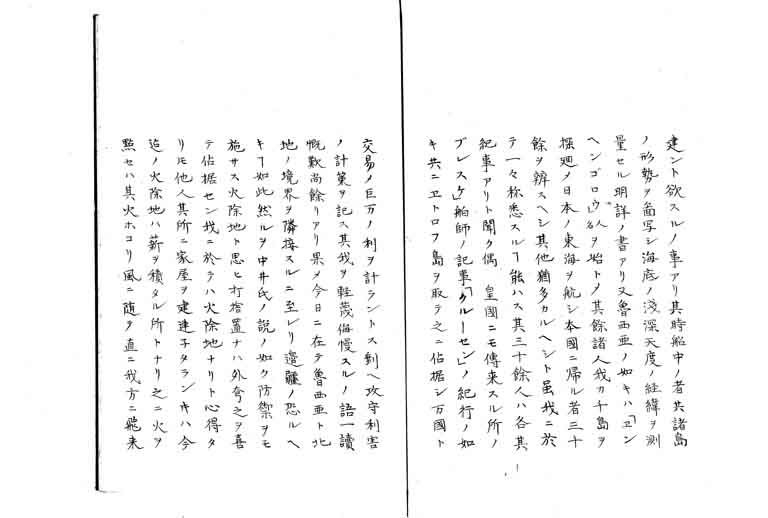 建ント欲スルノ事アリ其時船中ノ者共諸島
ノ形勢ヲ圖写シ海底ノ淺深天度ノ経緯ヲ測
量セル明詳ノ書アリ又魯西亜ノ如キハ「ヱン
ヘンゴロウ」人名ヲ始トメ其餘諸人我カ千島ヲ
探廻メ日本ノ東海ヲ航シ本國ニ帰ル者三十
餘ヲ辨スヘシ其他猶多カルヘシト虽我ニ於
テ一々称悉スルヿ能ハス其三十餘人ハ各其
紀事アリト聞ク偶　皇國ニモ傳来スル所ノ
ブレスケ」舶師ノ記事「クルーセン」ノ紀行ノ如
キ共ニヱトロフ島ヲ取テ之ニ佔据シ万國ト
交易メ巨万ノ利ヲ計ラントス剴ヘ攻守利害
ノ計策ヲ記ス其我ヲ軽蔑侮慢スルノ語一讀
慨歎尚餘リアリ果メ今日ニ在テ魯西亜ト北
地ノ境界ヲ隣接スルニ至レリ邉疆ノ恐ルヘ
キヿ如此然ルヲ中井氏ノ説ノ如ク防禦ヲモ
施サス火除地ト思ヒ打捨置ナハ外夸之ヲ喜
テ佔据セン我ニ於テハ火除地ナリト心得タ
リ𪜈他人其所ニ家屋ヲ建連子タランキハ今
迠ノ火除地ハ薪ヲ積タル所トナリ之ニ火ヲ
點セハ其火ホコリ風ニ随ヲ直ニ我方ニ飛来